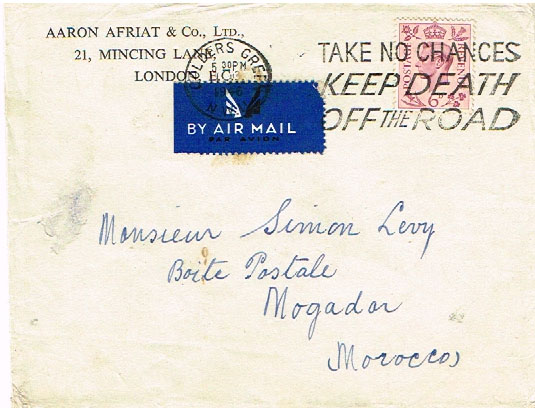 AARON AFRIAT & CO., LTD.,
21, MINCING LANE
LONDON E.C.
GOLDERS GREEN
30PM
N.W.
TAKE NO CHANCES
KEEP DEATH
OFF THE ROAD
POSTAGE
6D
BY AIR MAIL
PAR AVION
Monsieur Simon Levy
Boite Postale
Mogador
Morocco